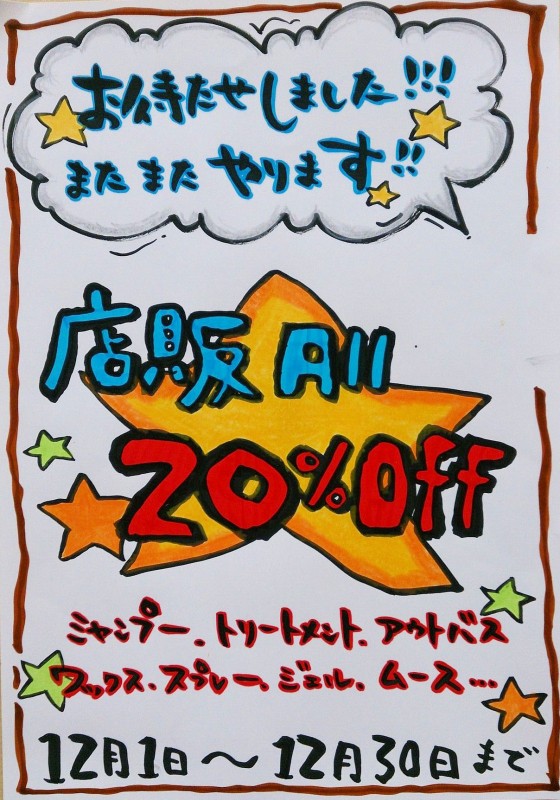 お待たせしました!!!
またまた やります!!
店販 All
20%OFF
シャンプー、トリートメント、アウトバス
ワックス、スプレー、ジェル、ムース…
12月1日〜12月30日まで